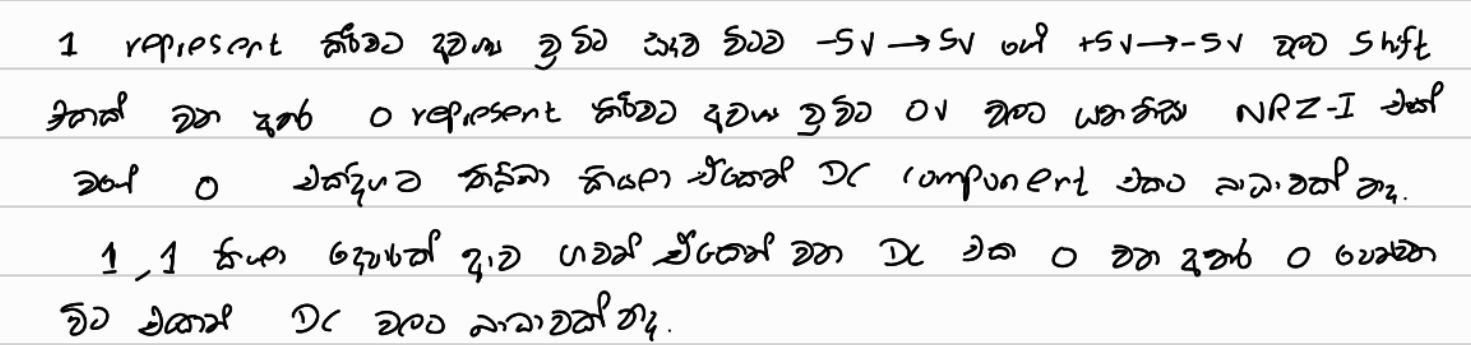 1 represent කිරීමට අවශ්‍ය වූ විට සෑම විටම -5V → 5V හෝ +5V → -5V වලට Shift
එකක් වන අතර 0 represent කිරීමට අවශ්‍ය වූ විට 0V වලට යන නිසා NRZ-I එකේ
වගේ 0 එකදිගට තිබ්බා කියලා ඒකෙන් DC component එකට බාධාවක් නැද.
1,1 කියලා දෙපාරක් ආව ගමන් ඒකෙන් වන DC එක 0 වන අතර 0 පෙන්වන
විට එකෙන් DC වලට බාධාවක් නැද.